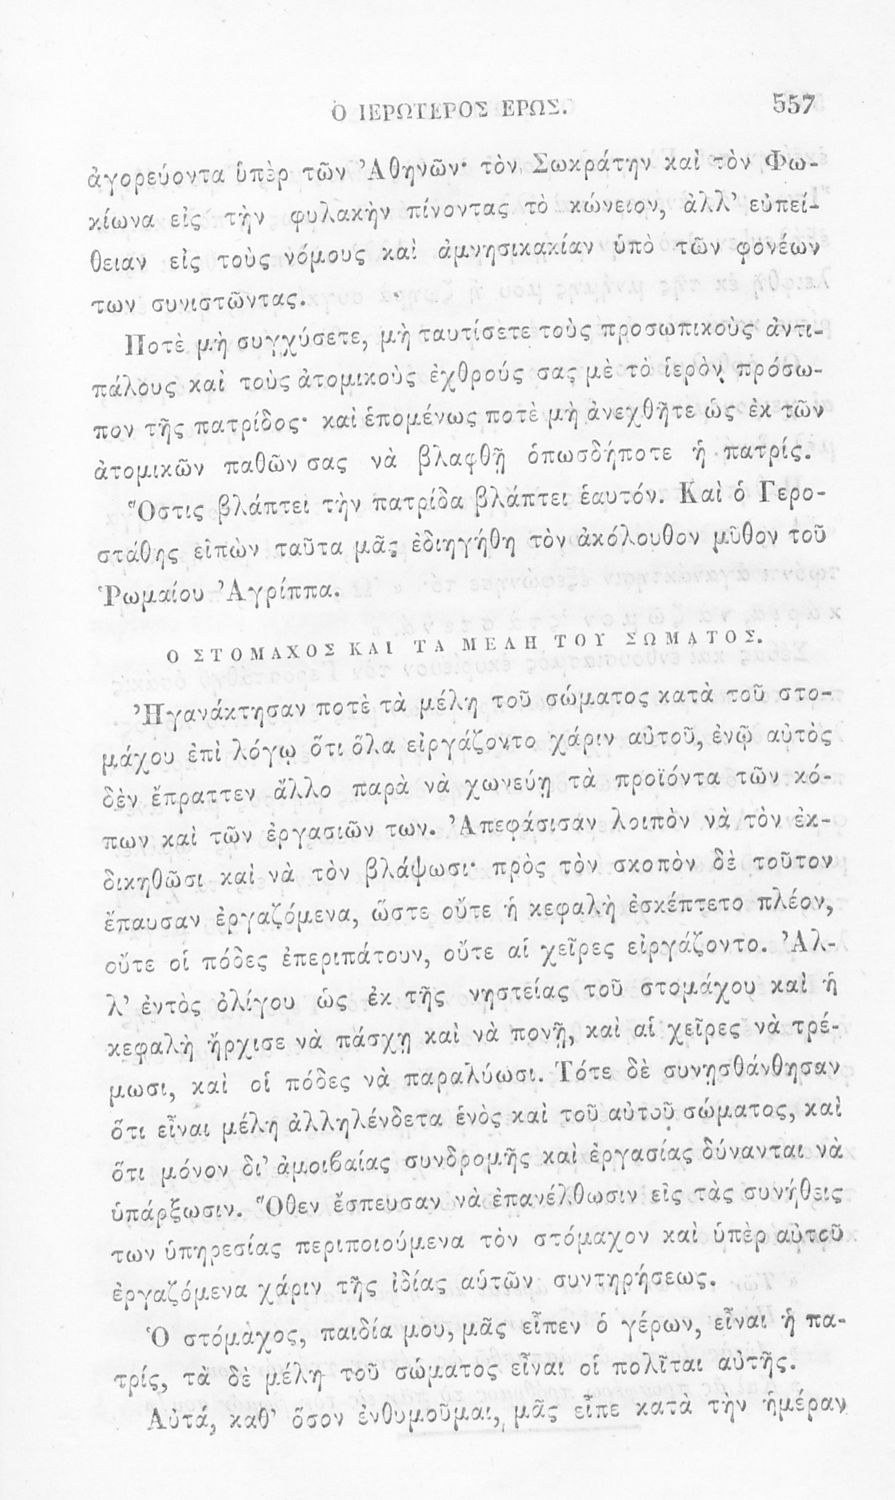 Ο ΙΕΡΩΤΕΡΟΣ ΕΡΩΣ. 557
ἀγορεύοντα ὑπὲρ τῶν Ἀθηνῶν· τὸν Σωκράτην καὶ τὸν Φω-
κίωνα εἰς τὴν φυλακὴν πίνοντας τὸ κώνειον, ἀλλ’ εὐπεί-
θειαν εἰς τοὺς νόμους καὶ ἀμνησικακίαν ὑπὸ τῶν φονέων
των συνιστῶντας.
Ποτὲ μὴ συγχύσετε, μὴ ταυτίσετε τοὺς προσωπικοὺς ἀντι-
πάλους καὶ τοὺς ἀτομικοὺς ἐχθρούς σας μὲ τὸ ἱερὸν πρόσω-
πον τῆς πατρίδος· καὶ ἑπομένως ποτὲ μὴ ἀνεχθῆτε ὡς ἐκ τῶν
ἀτομικῶν παθῶν σας νὰ βλαφθῇ ὁπωσδήποτε ἡ πατρίς.
Ὅστις βλάπτει τὴν πατρίδα βλάπτει ἑαυτόν. Καὶ ὁ Γερο-
στάθης εἰπὼν ταῦτα μᾶς ἐδιηγήθη τὸν ἀκόλουθον μῦθον τοῦ
Ῥωμαίου Ἀγρίππα.
Ο ΣΤΟΜΑΧΟΣ ΚΑΙ ΤΑ ΜΕΛΗ ΤΟΥ ΣΩΜΑΤΟΣ.
Ἠγανάκτησαν ποτὲ τὰ μέλη τοῦ σώματος κατὰ τοῦ στο-
μάχου ἐπὶ λόγῳ ὅτι ὅλα εἰργάζοντο χάριν αὐτοῦ, ἐνῷ αὐτὸς
δὲν ἔπραττεν ἄλλο παρὰ νὰ χωνεύῃ τὰ προϊόντα τῶν κό-
πων καὶ τῶν ἐργασιῶν των. Ἀπεφάσισαν λοιπὸν νὰ τὸν ἐκ-
δικηθῶσι καὶ νὰ τὸν βλάψωσι· πρὸς τὸν σκοπὸν δὲ τοῦτον
ἔπαυσαν ἐργαζόμενα, ὥστε οὔτε ἡ κεφαλὴ ἐσκέπτετο πλέον,
οὔτε οἱ πόδες ἐπεριπάτουν, οὔτε αἱ χεῖρες εἰργάζοντο. Ἀλ-
λ’ ἐντὸς ὀλίγου ὡς ἐκ τῆς νηστείας τοῦ στομάχου καὶ ἡ
κεφαλὴ ἤρχισε νὰ πάσχῃ καὶ νὰ πονῇ, καὶ αἱ χεῖρες νὰ τρέ-
μωσι, καὶ οἱ πόδες νὰ παραλύωσι. Τότε δὲ συνῃσθάνθησαν
ὅτι εἶναι μέλη ἀλληλένδετα ἑνὸς καὶ τοῦ αὐτοῦ σώματος, καὶ
ὅτι μόνον δι’ ἀμοιβαίας συνδρομῆς καὶ ἐργασίας δύνανται νὰ
ὑπάρξωσιν. Ὅθεν ἔσπευσαν νὰ ἐπανέλθωσιν εἰς τὰς συνήθεις
των ὑπηρεσίας περιποιούμενα τὸν στόμαχον καὶ ὑπὲρ αὐτοῦ
ἐργαζόμενα χάριν τῆς ἰδίας αὑτῶν συντηρήσεως.
Ὁ στόμαχος, παιδία μου, μᾶς εἶπεν ὁ γέρων, εἶναι ἡ πα-
τρίς, τὰ δὲ μέλη τοῦ σώματος εἶναι οἱ πολῖται αὐτῆς.
Αὐτά, καθ’ ὅσον ἐνθυμοῦμαι, μᾶς εἶπε κατὰ τὴν ἡμέραν